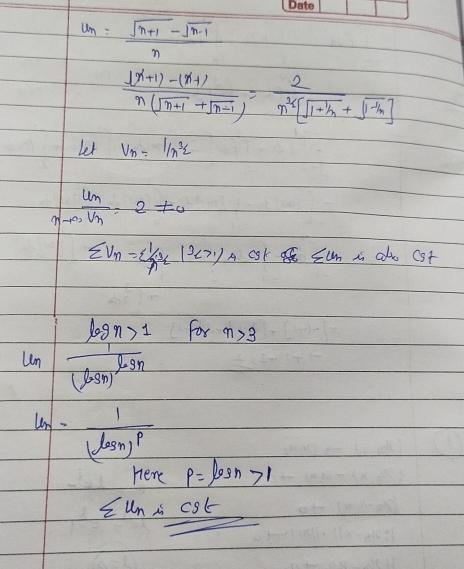 Date
Un = √n+1 - √n-1 / n
(n+1) - (n-1) / n(√n+1 + √n-1) = 2 / n^3/2 [√1+1/n + √1-1/n]
Let Vn = 1/n^3/2
Un / Vn = 2 ≠ 0
n→∞
ΣVn = Σ 1/n^3/2 (3/2>1) is cgt ΣUn is also cgt
logn > 1 for n>3
Un 1 / (logn)^logn
Un = 1 / (logn)^p
Here p = logn > 1
ΣUn is cgt